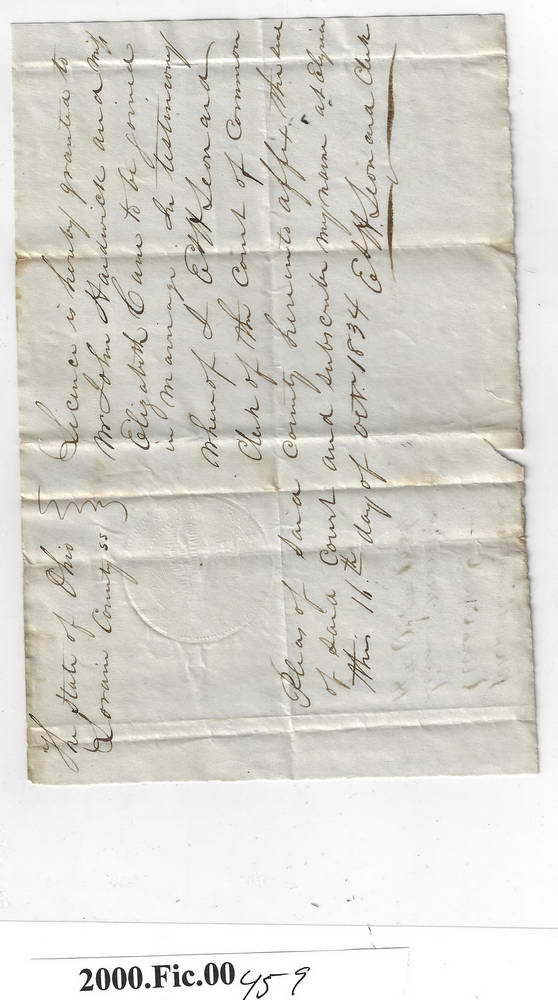 The State of Ohio
Lorain County ss
Licence is hereby granted to
Mr John Hardwick and Miss
Elizabeth Cane to be joined
in Marriage. In testimony
Whereof I E W Leonard
Clerk of the Court of Common
Pleas of Said County hereunto affix the seal
of Said Court and subscribe my name at Elyria
this 16th day of Oct. 1834 E W Leonard Clerk
2000.Fic.00459